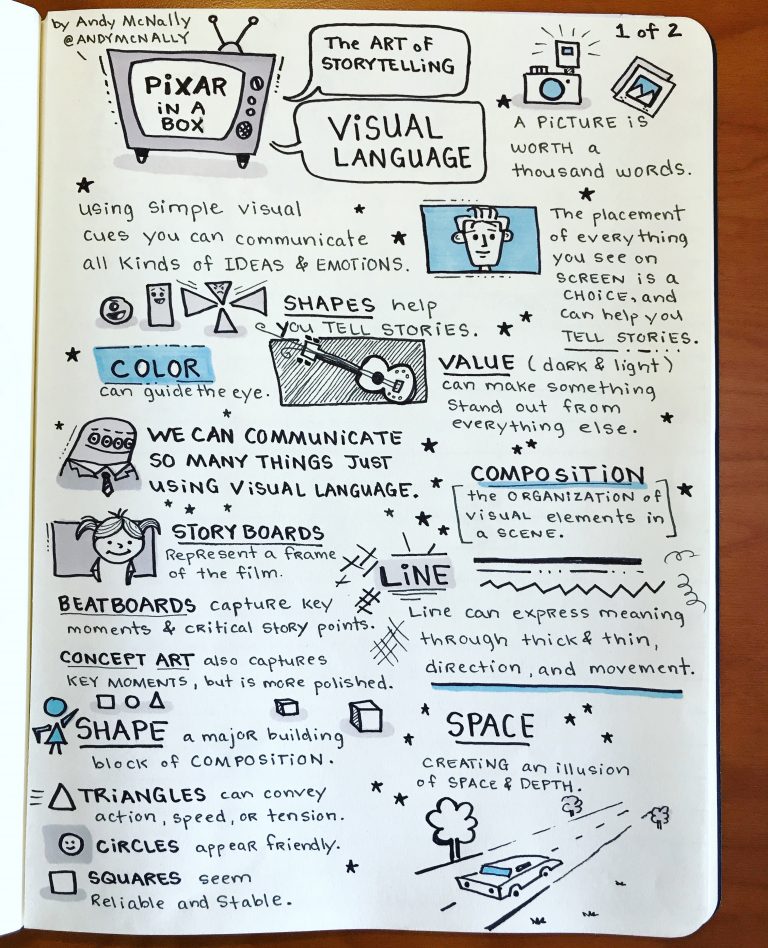 by Andy McNally
@ANDYMCNALLY
1 of 2
PiXAR
iN A
BOX
The ART of
STORYTELLiNG
ViSUAL
LANGUAGE
A PICTURE IS
WORTH A
thousand words.
using simple visual
cues you can communicate
all kinds of IDEAS & EMOTIONS.
The placement
of everything
you see on
SCREEN IS A
CHOICE, and
can help you
TELL STORIES.
SHAPES help
you TELL STORIES.
COLOR
can guide the eye.
VALUE (dark & light)
can make something
stand out from
everything else.
WE CAN COMMUNiCATE
SO MANY THiNGS JUST
USiNG ViSUAL LANGUAGE.
COMPOSiTiON
the ORGANIZATION of
VISUAL elements in
a SCENE.
STORYBOARDS
Represent a frame
of the film.
BEATBOARDS capture key
moments & critical story points.
CONCEPT ART also captures
KEY MOMENTS, but is more polished.
LiNE
Line can express meaning
through thick & thin,
direction, and movement.
SHAPE a major building
block of COMPOSITION.
TRiANGLES can convey
action, speed, OR tension.
CiRCLES appear friendly.
SQUARES seem
Reliable and Stable.
SPACE
CREATING an illusion
of SPACE & DEPTH.